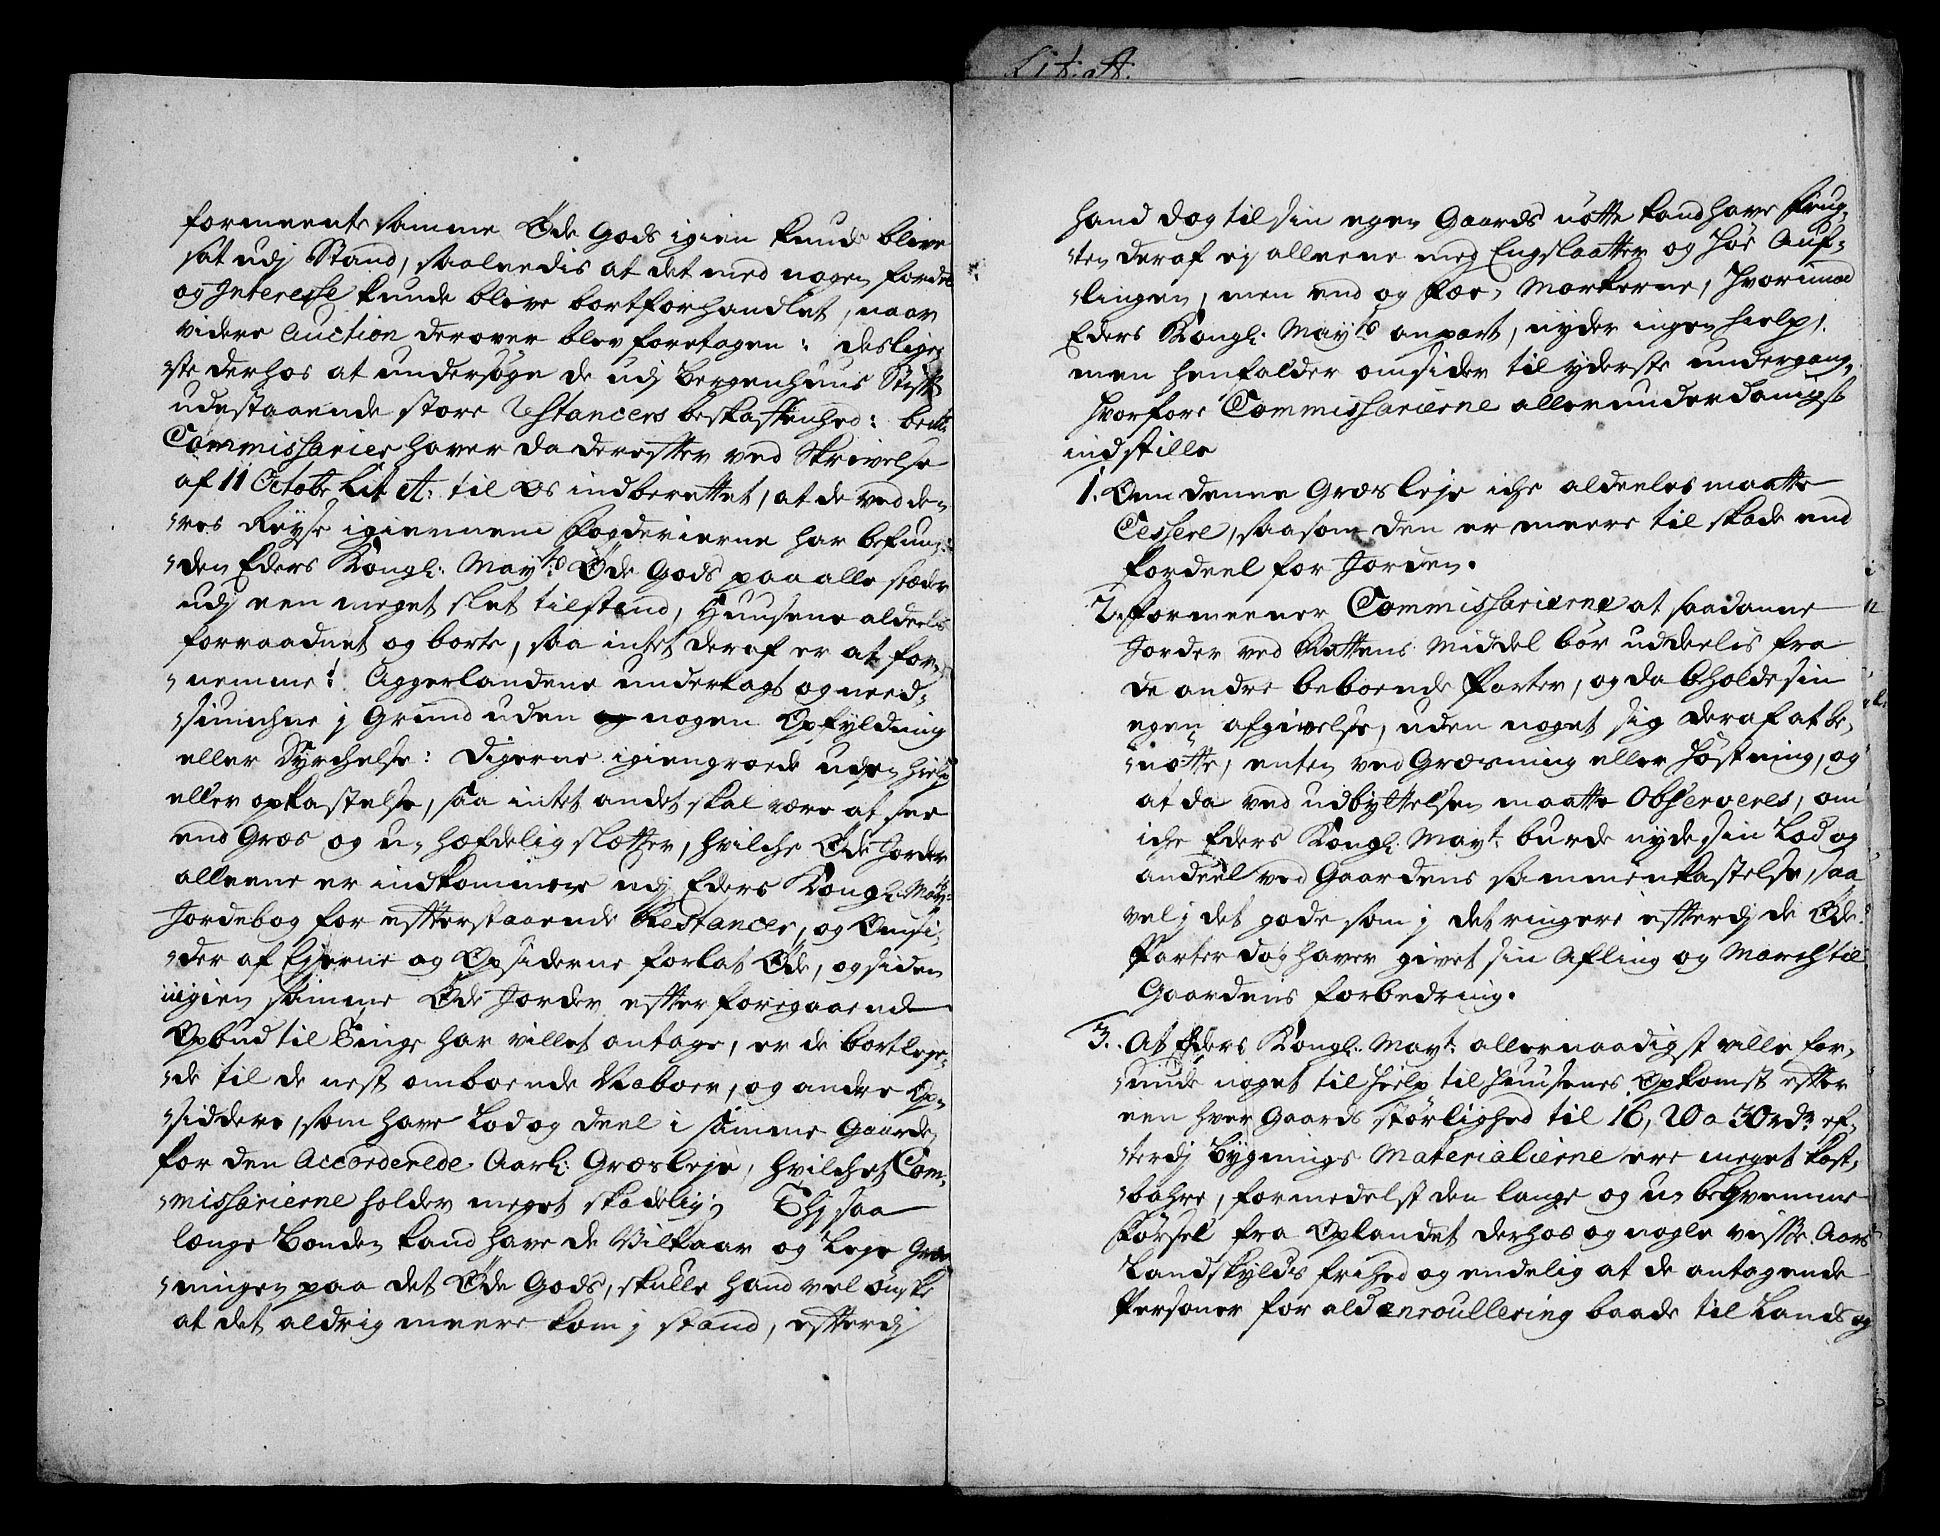 formeente samme Øde Gods igien kunde blive
sat udj Stand, saaleedis at det med nogen fordel
og Interesse kunde blive bortforhandlet, naar
videre Auction derover blev foretagen: desliges
-te derhos at undersøge de udj Bergenhuus Stift
udestaaende store Restancers beskaffenhed: bem:te
Commissarier haver da derefter ved Skrivelse
af 11 Octobr Lit A: til os indberettet, at de ved de-
-res Reyse igiennem Fogderierne har befun-
-den Eders Kongl: May:ts Øde Gods paa alle stæder
udj een meget slet tilstand, Huusene aldeeles
forraadnet og borte, saa intet deraf er at for-
-nemme: Aggerlandene underlagt og need-
-siunchne j Grund uden nogen Opfyldning
eller Dyrchelse: Digerne igiengroede uden hielp
eller opkastelse, saa intet andet skal være at see
end Græs og u-hæfdelig slætter, hvilche Øde Jorder
alleene er indkommene udj Eders Kongl: May:ts
Jordebog for effterstaaende Restancer, og Omsi-
-der af Ejerne og Opsiderne forlat Øde, og siden
ingien samme Øde Jorder effter foregaaende
Opbud til Tinge har villet antage, er de bortleje-
-de til de nest omboende Naboer, og andre Op-
-siddere, som have Lod og deel i samme Gaarde,
for den Accorderede Aarl: Græsleje, hvilchet Com-
-missarierne holder meget skadelig; Thj saa
længe Bonden kand have de Vilkaar og Leje Græs-
-ningen paa det Øde Gods, skulle hand vel ønske
at det aldrig meere kom j stand, efterdj
Lit: A:
hand dog til sin egen Gaards nøtte kand have Frug-
-ten deraf ej alleene med Engslaatter og Høe Auf-
-lingen, men end og Fæe-Markerne, hvorimod
Eders Kongl: May:ts anpart, nyder ingen hielp,
men henfalder omsider til yderste undergang,
hvorfore Commissarierne allerunderdanigst
indstille
1. Om denne Græsleje iche aldeeles maatte
Cessere, saasom den er meere til skade end
fordeel for Jorden.
2. Formeener Commissarierne at saadanne
Jorder ved Rettens Middel bør uddeelis fra
de andre beboende Parter, og da beholde sin
egen afgivelse, uden noget sig deraf at be-
-nøtte, enten ved Græsning eller Høstning, og
at da ved udbyttelsen maatte Observeres, om
iche Eders Kongl: May:t burde nyde sin Lod og
andeel ved Gaardens sammenkastelse, saa
vel j det gode som j det ringere effterdj de Øde
Parter dog haver givet sin Afling og March til
Gaardens forbedring.
3. At Eders Kongl: May:t allernaadigst ville for-
-unde noget til Hielp til Huusenes Opkomst effter
een hver Gaards størlighed til 16, 20 a 30 rdr ef-
-terdj Bygnings Materialierne ere meget kost-
-bahre, formedelst den lange og u-beqvemme
Førsel fra Oplandet derhos og nogle visse Aars
Landskylds frihed og endelig at de antagende
Personer for ald enroullering baade til Lands og